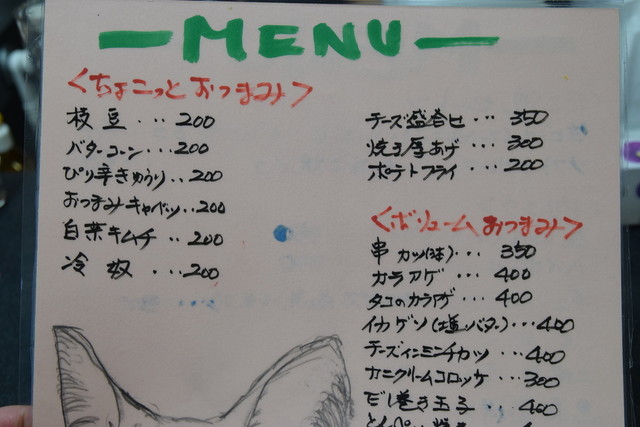 MENU
<ちょこっとおつまみ>
枝豆 ... 200
バターコーン ... 200
ぴり辛きゅうり .. 200
おつまみキャベツ .. 200
白菜キムチ .. 200
冷奴 ... 200
チーズ盛合せ ... 350
焼き厚あげ ... 300
ポテトフライ ... 200
<ボリュームおつまみ>
串カツ(3本) ... 350
カラアゲ ... 400
タコのカラアゲ ... 400
イカゲソ(塩.バター) ... 400
チーズインミンチカツ ... 400
カニクリームコロッケ ... 300
だし巻き玉子 ... 400